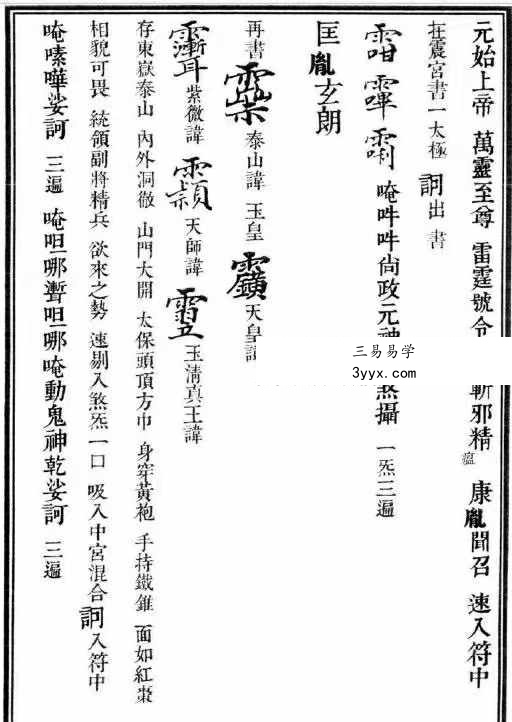 元始上帝 萬靈至尊 雷霆號令 斬邪精 瘟 康胤聞召 速入符中
在震宮書一太極 訶出 書
唵吽吽尙政元神 煞攝 一炁三遍
匡胤玄朗
再書 泰山諱 玉皇 天皇
紫微諱 天師諱 玉淸真王諱
存東嶽泰山 內外洞徹 山門大開 太保頭頂方巾 身穿黃袍 手持鐵錐 面如紅棗
相貌可畏 統領副將精兵 欲來之勢 速剔入煞炁一口 吸入中宮混合 訶入符中
唵嗉嘩娑訶 三遍 唵呾哪 呾哪唵動鬼神乾娑訶 三遍
三易易学
3yyx.com